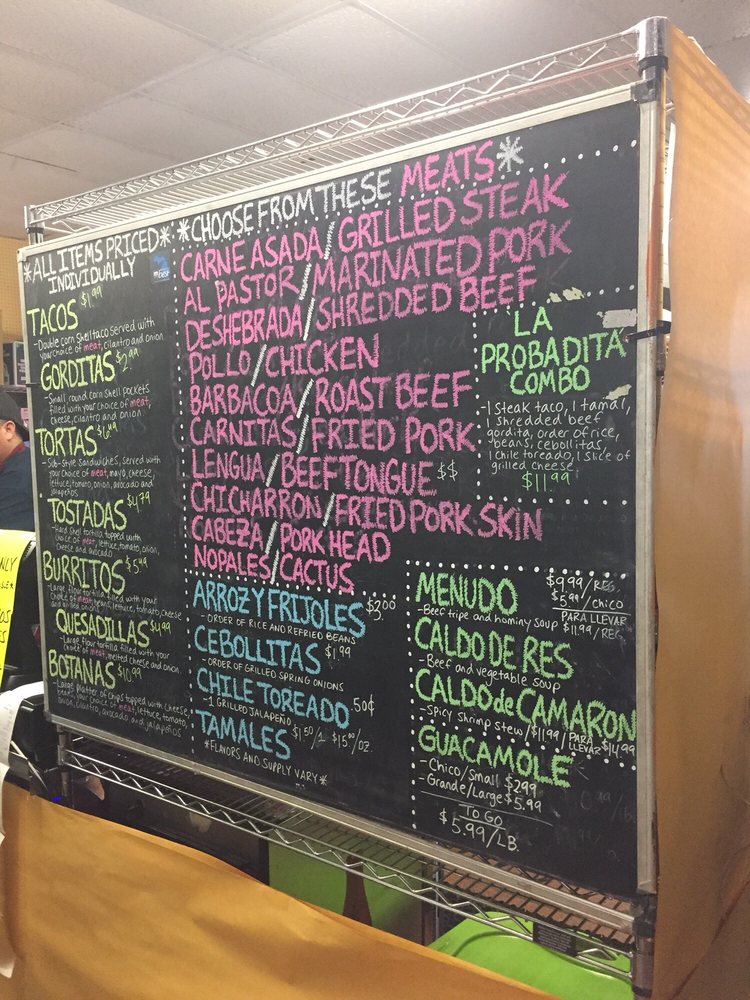 *ALL ITEMS PRICED*
INDIVIDUALLY
TACOS $1.99
-Double corn shell taco served with
your choice of meat, cilantro and onion
GORDITAS $2.99
-Small, round corn shell pockets
filled with your choice of meat,
cheese, cilantro and onion
TORTAS $6.49
-Sub-style sandwiches, served with
your choice of meat, mayo, cheese,
lettuce, tomato, onion, avocado and
jalapeños
TOSTADAS $4.79
-Hard shell tortilla topped with
choice of meat, lettuce, tomato, onion,
cheese and avocado
BURRITOS $5.49
-Large, flour tortilla filled with your
choice of meat, beans, lettuce, tomato, cheese
QUESADILLAS $4.99
-Large flour tortilla filled with your
choice of meat, melted cheese and onion
BOTANAS $10.99
-Large platter of chips topped with cheese
beans, your choice of meat, lettuce, tomato,
onion, cilantro, avocado, and jalapeños
*CHOOSE FROM THESE MEATS*
CARNE ASADA/GRILLED STEAK
AL PASTOR/MARINATED PORK
DESHEBRADA/SHREDDED BEEF
POLLO/CHICKEN
BARBACOA/ROAST BEEF
CARNITAS/FRIED PORK
LENGUA/BEEF TONGUE $$
CHICHARRON/FRIED PORK SKIN
CABEZA/PORK HEAD
NOPALES/CACTUS
LA
PROBADITA
COMBO
-1 steak taco, 1 tamal,
1 shredded beef
gordita, order of rice,
beans, cebollitas,
1 chile toreado, 1 slice of
grilled cheese
$11.99
ARROZ Y FRIJOLES $2.00
-ORDER OF RICE AND REFRIED BEANS
CEBOLLITAS $1.99
-ORDER OF GRILLED SPRING ONIONS
CHILE TOREADO .50¢
-1 GRILLED JALAPEÑO
TAMALES $1.50/1 $15.00/DZ.
*FLAVORS AND SUPPLY VARY*
MENUDO $9.99/REG
$5.99/CHICO
-Beef tripe and hominy soup PARA LLEVAR
$11.99/REG
CALDO DE RES
-Beef and vegetable soup
CALDO de CAMARON
-Spicy shrimp stew/$11.99/PARA LLEVAR $14.99
GUACAMOLE
-Chico/Small $2.99
-Grande/Large $5.99
TO GO
$5.99/LB.